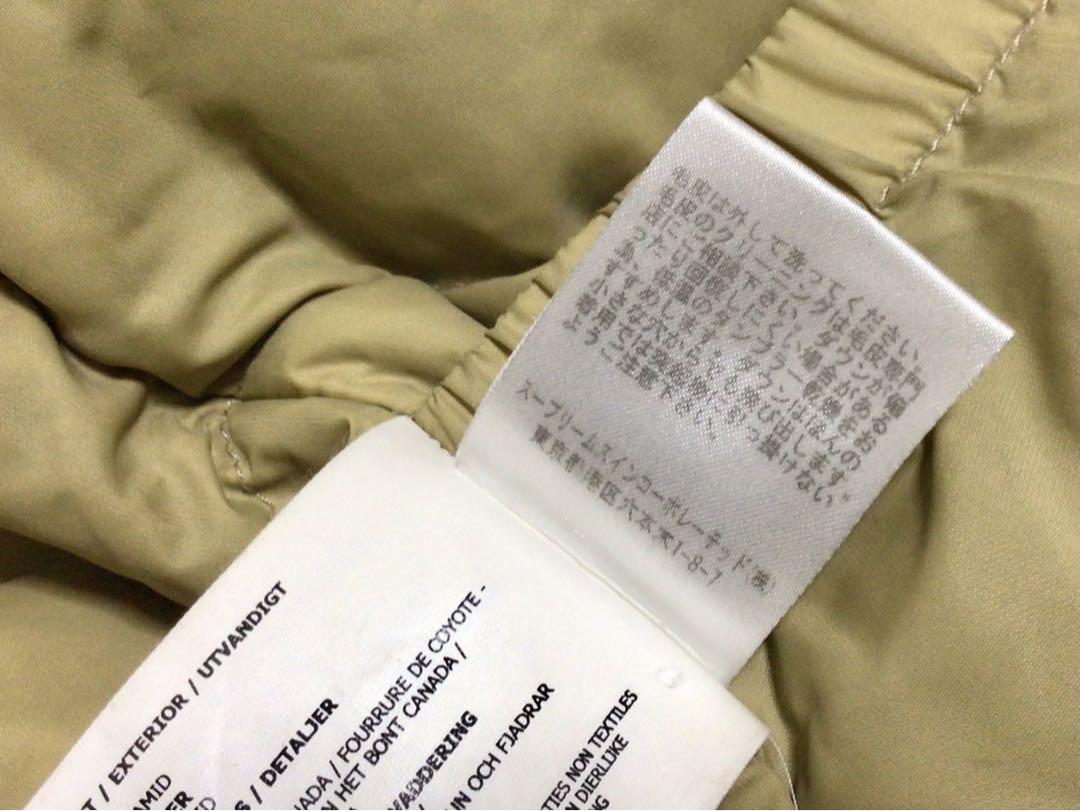 毛皮は外して洗ってください
毛皮のクリーニングは毛皮専門
店にご相談下さい。ダウンが偏
ったり回復しにくい場合がある
為、低温のタンブラー乾燥をお
すすめします。ダウンはほんの
小さな穴からも飛び出します
着用では鋭い物に引っ掛けない
ようご注意下さい。
スープリームスインコーポレーテッド(株)
東京都港区六本木1-8-7
/ EXTERIOR / UTVANDIGT
/ DETALJER
/ FOURRURE DE COYOTE -
HET BONT CANADA /
OCH FJADRAR
NON TEXTILES
DIERLIJKE